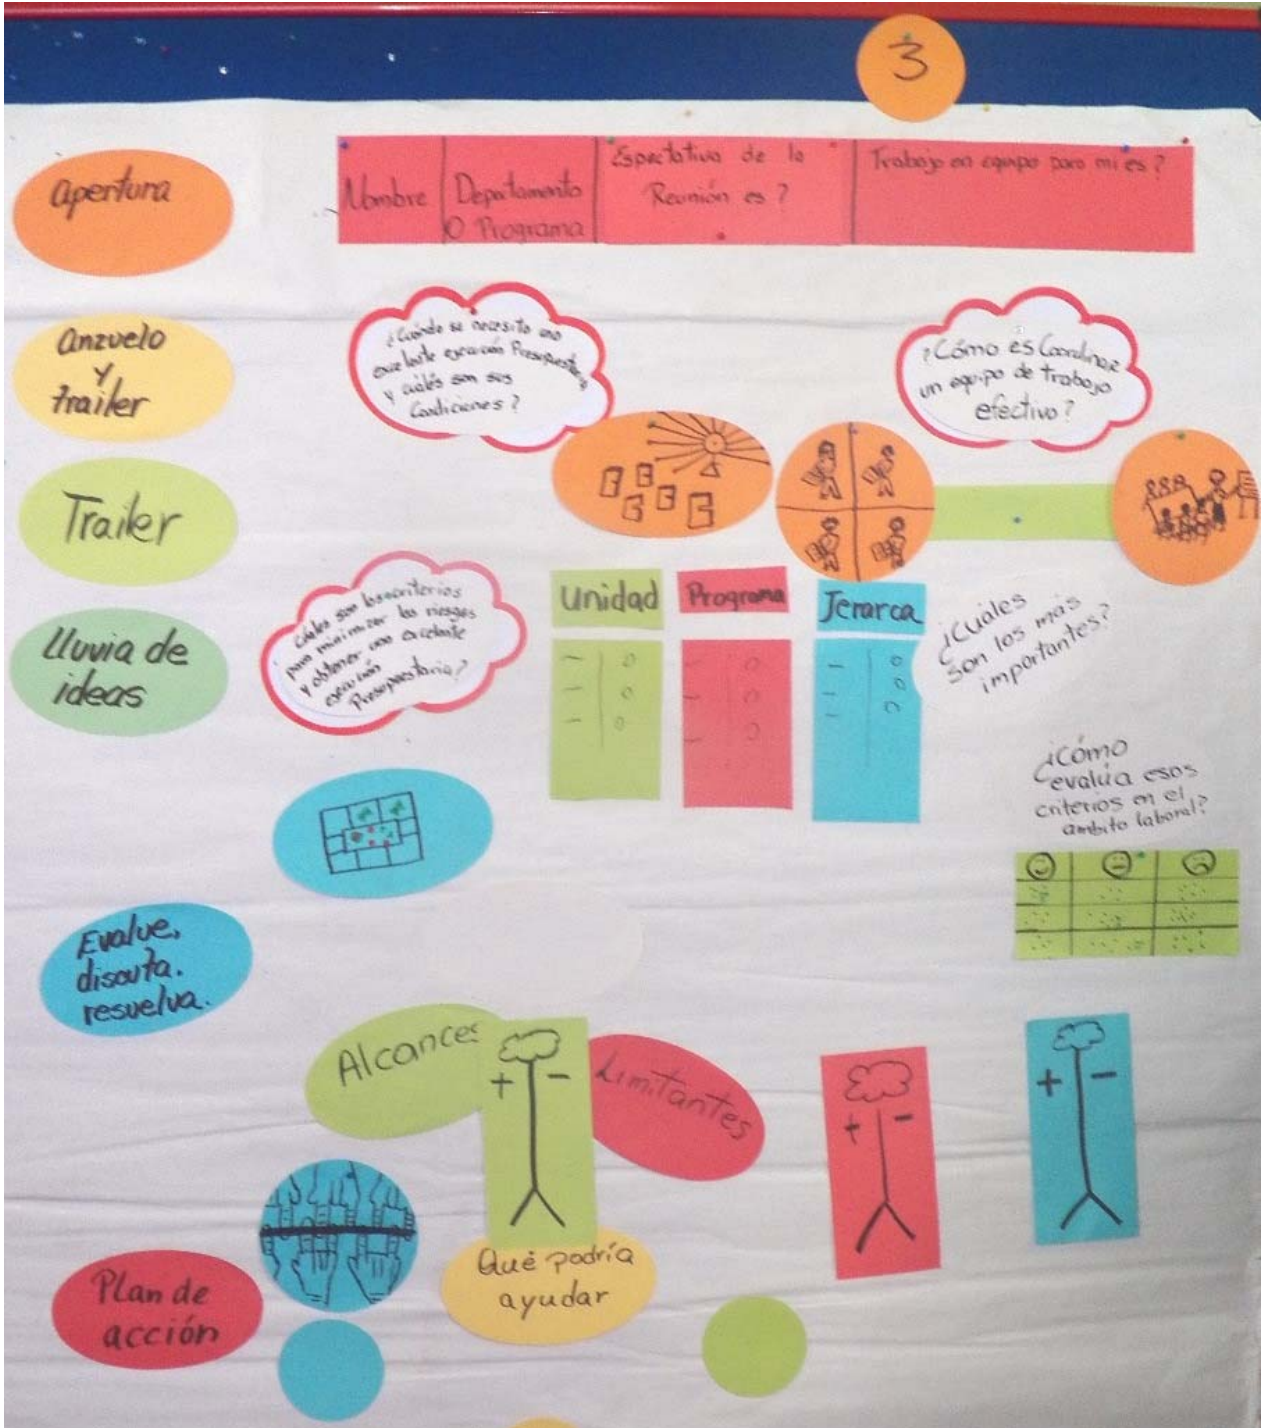 3
apertura
Nombre
Departamento
O Programa
Espectativa de la
Reunión es ?
Trabajo en equipo para mi es ?
Anzuelo
y
trailer
¿Cuándo se necesita una
excelente ejecución Presupuestaria
y cuáles son sus
Condiciones ?
¿Cómo es Coordinar
un equipo de trabajo
efectivo ?
Trailer
Lluvia de
ideas
Cuáles son los criterios
para minimizar los riesgos
y obtener una excelente
ejecución
Presupuestaria?
Unidad
Programa
Jerarca
¿Cuáles
son los más
importantes?
¿Cómo
evalúa esos
criterios en el
ambito laboral?
Evalue,
discuta.
resuelva.
Alcances
+ -
Limitantes
+ -
+ -
Plan de
acción
Qué podría
ayudar